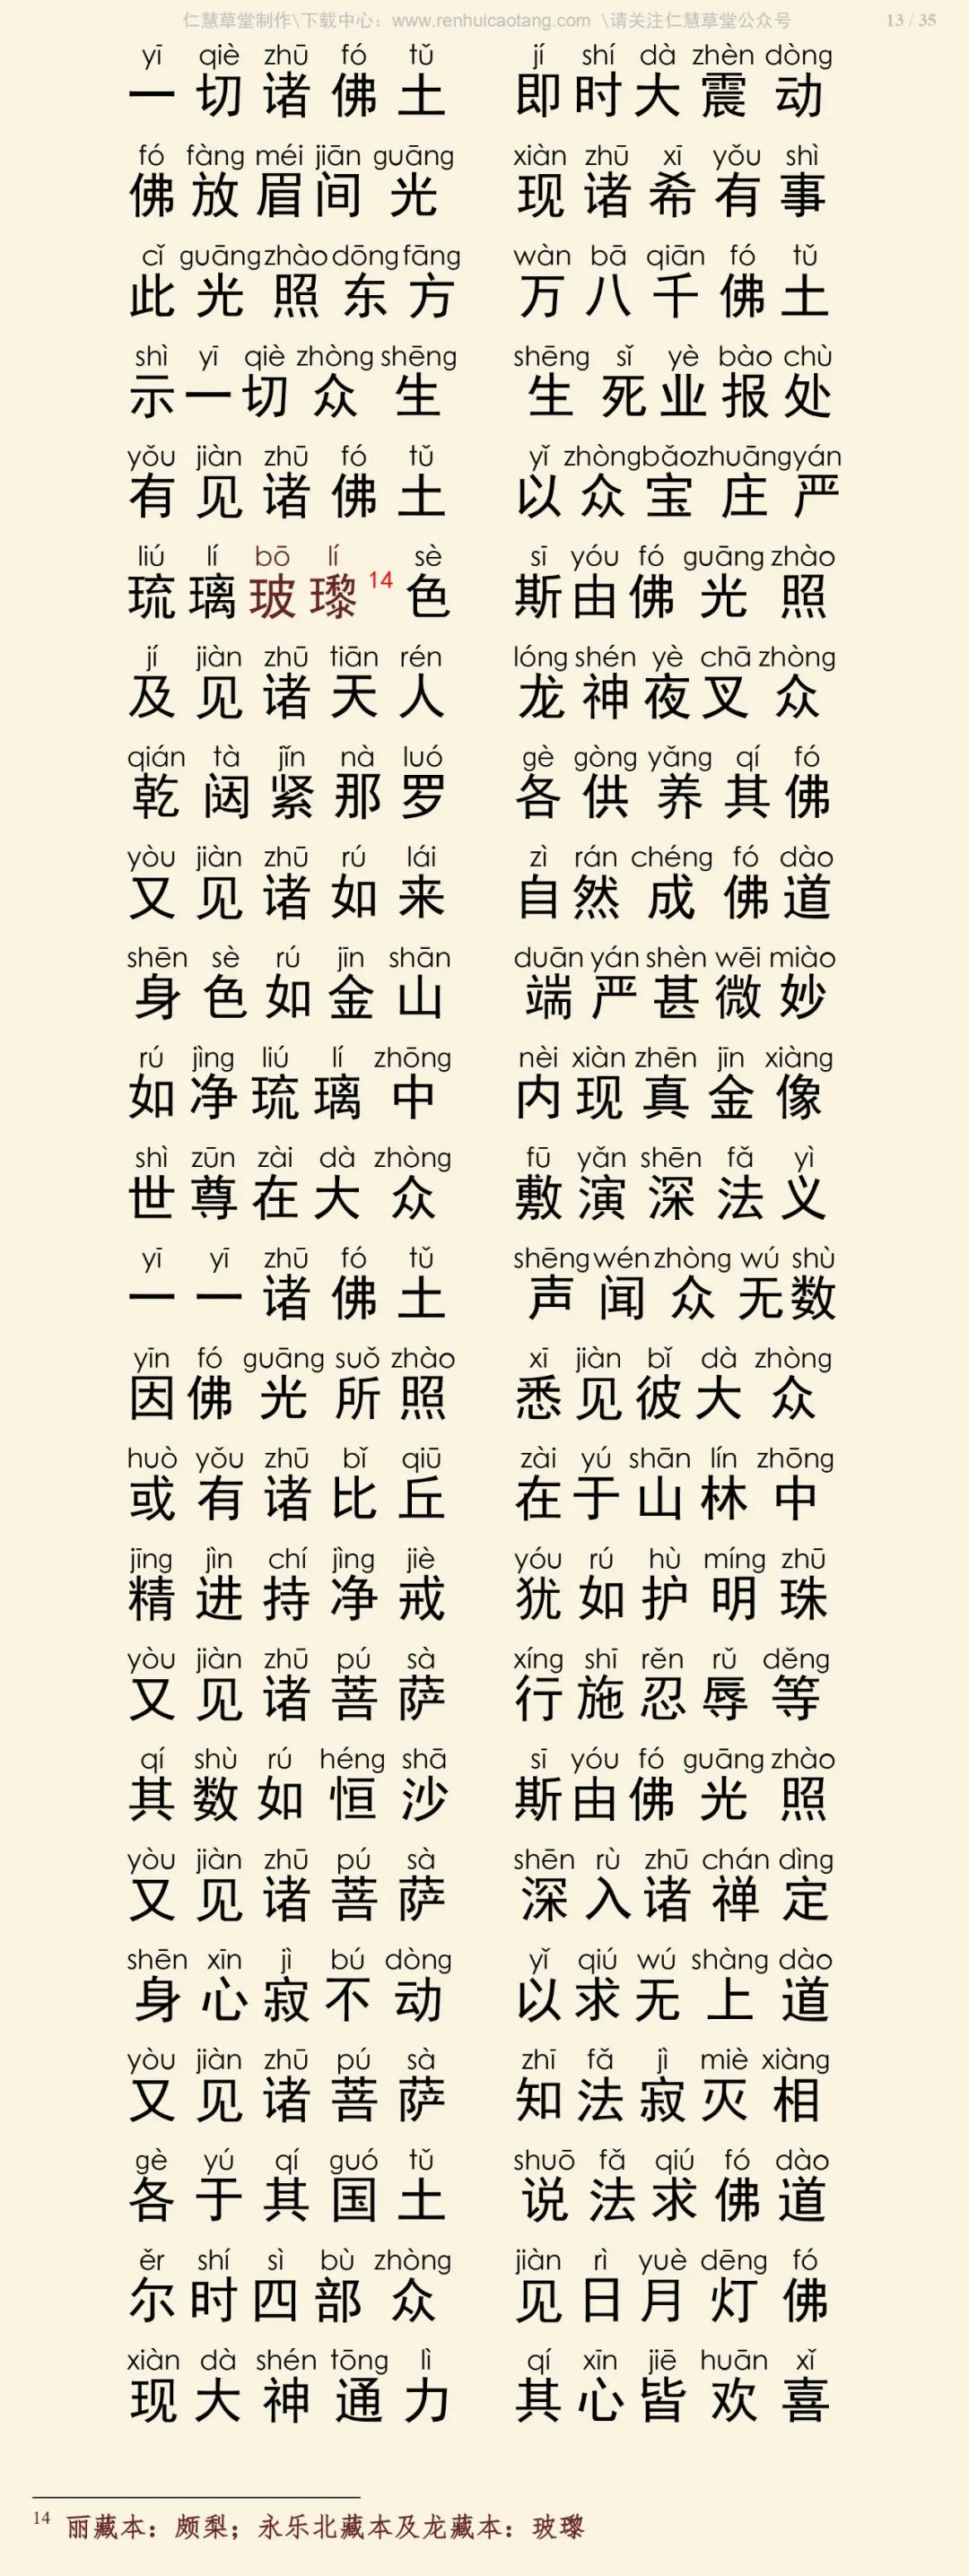 仁慧草堂制作\下载中心：www.renhuicaotang.com \请关注仁慧草堂公众号 13 / 35
yī qiè zhū fó tǔ jí shí dà zhèn dòng
一切诸佛土 即时大震动
fó fàng méi jiān guāng xiàn zhū xī yǒu shì
佛放眉间光 现诸希有事
cǐ guāng zhào dōng fāng wàn bā qiān fó tǔ
此光照东方 万八千佛土
shì yī qiè zhòng shēng shēng sǐ yè bào chù
示一切众生 生死业报处
yǒu jiàn zhū fó tǔ yǐ zhòng bǎo zhuāng yán
有见诸佛土 以众宝庄严
liú lí bō lí sè sī yóu fó guāng zhào
琉璃玻瓈14色 斯由佛光照
jí jiàn zhū tiān rén lóng shén yè chā zhòng
及见诸天人 龙神夜叉众
qián tà jǐn nà luó gè gòng yǎng qí fó
乾闼紧那罗 各供养其佛
yòu jiàn zhū rú lái zì rán chéng fó dào
又见诸如来 自然成佛道
shēn sè rú jīn shān duān yán shèn wēi miào
身色如金山 端严甚微妙
rú jìng liú lí zhōng nèi xiàn zhēn jīn xiàng
如净琉璃中 内现真金像
shì zūn zài dà zhòng fū yǎn shēn fǎ yì
世尊在大众 敷演深法义
yī yī zhū fó tǔ shēng wén zhòng wú shù
一一诸佛土 声闻众无数
yīn fó guāng suǒ zhào xī jiàn bǐ dà zhòng
因佛光所照 悉见彼大众
huò yǒu zhū bǐ qiū zài yú shān lín zhōng
或有诸比丘 在于山林中
jīng jìn chí jìng jiè yóu rú hù míng zhū
精进持净戒 犹如护明珠
yòu jiàn zhū pú sà xíng shī rěn rǔ děng
又见诸菩萨 行施忍辱等
qí shù rú héng shā sī yóu fó guāng zhào
其数如恒沙 斯由佛光照
yòu jiàn zhū pú sà shēn rù zhū chán dìng
又见诸菩萨 深入诸禅定
shēn xīn jì bú dòng yǐ qiú wú shàng dào
身心寂不动 以求无上道
yòu jiàn zhū pú sà zhī fǎ jì miè xiàng
又见诸菩萨 知法寂灭相
gè yú qí guó tǔ shuō fǎ qiú fó dào
各于其国土 说法求佛道
ěr shí sì bù zhòng jiàn rì yuè dēng fó
尔时四部众 见日月灯佛
xiàn dà shén tōng lì qí xīn jiē huān xǐ
现大神通力 其心皆欢喜
14 丽藏本：颇梨；永乐北藏本及龙藏本：玻瓈